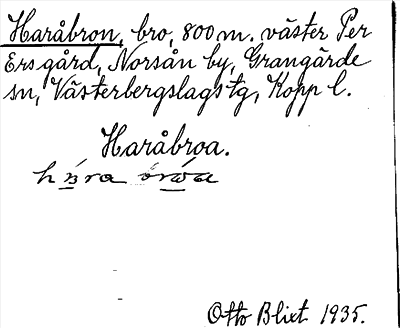 Haråbron, bro, 800 m. väster Per
Ers gård, Norsån by, Grangärde
sn, Västerbergslags tg, Kopp l.
Haråbroa.
Otto Blixt 1935.